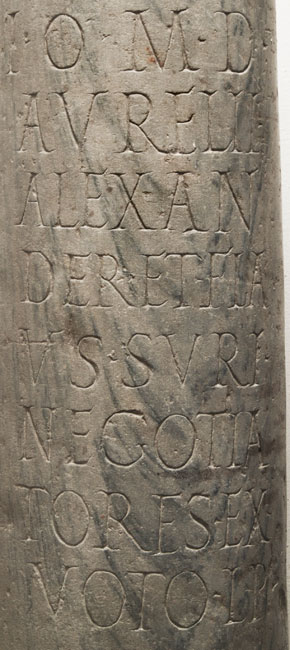 I·O·M·D·
AVRELII
ALEXAN
DER·ET·FLA
VS·SVRI
NEGOTIA
TORES·EX
VOTO·L·P·